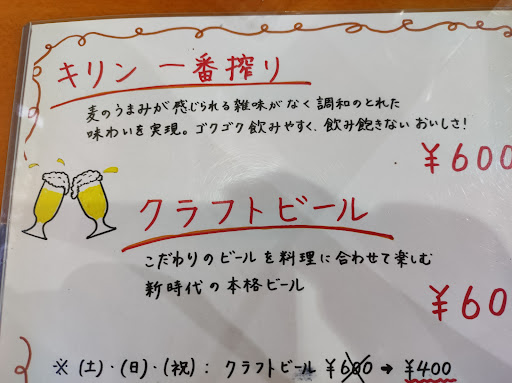 キリン 一番搾り
麦のうまみが感じられる雑味がなく調和のとれた
味わいを実現。ゴクゴク飲みやすく、飲み飽きないおいしさ!
¥600
クラフトビール
こだわりのビールを料理に合わせて楽しむ
新時代の本格ビール
¥60
※(土)・(日)・(祝): クラフトビール ¥600 → ¥400